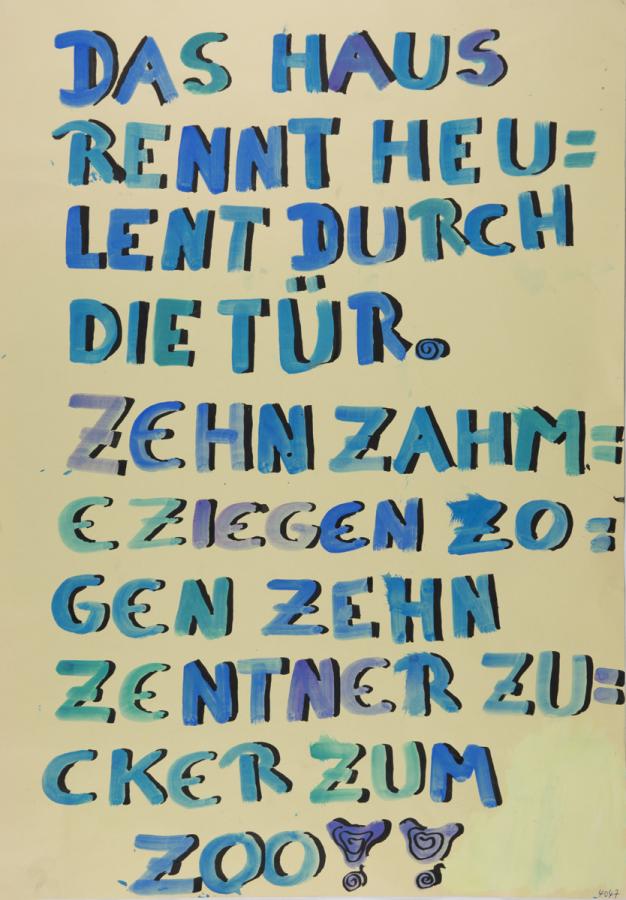 DAS HAUS
RENNT HEU=
LENT DURCH
DIE TÜR.
ZEHN ZAHM=
E ZIEGEN ZO=
GEN ZEHN
ZENTNER ZU=
CKER ZUM
ZOO!!
4047